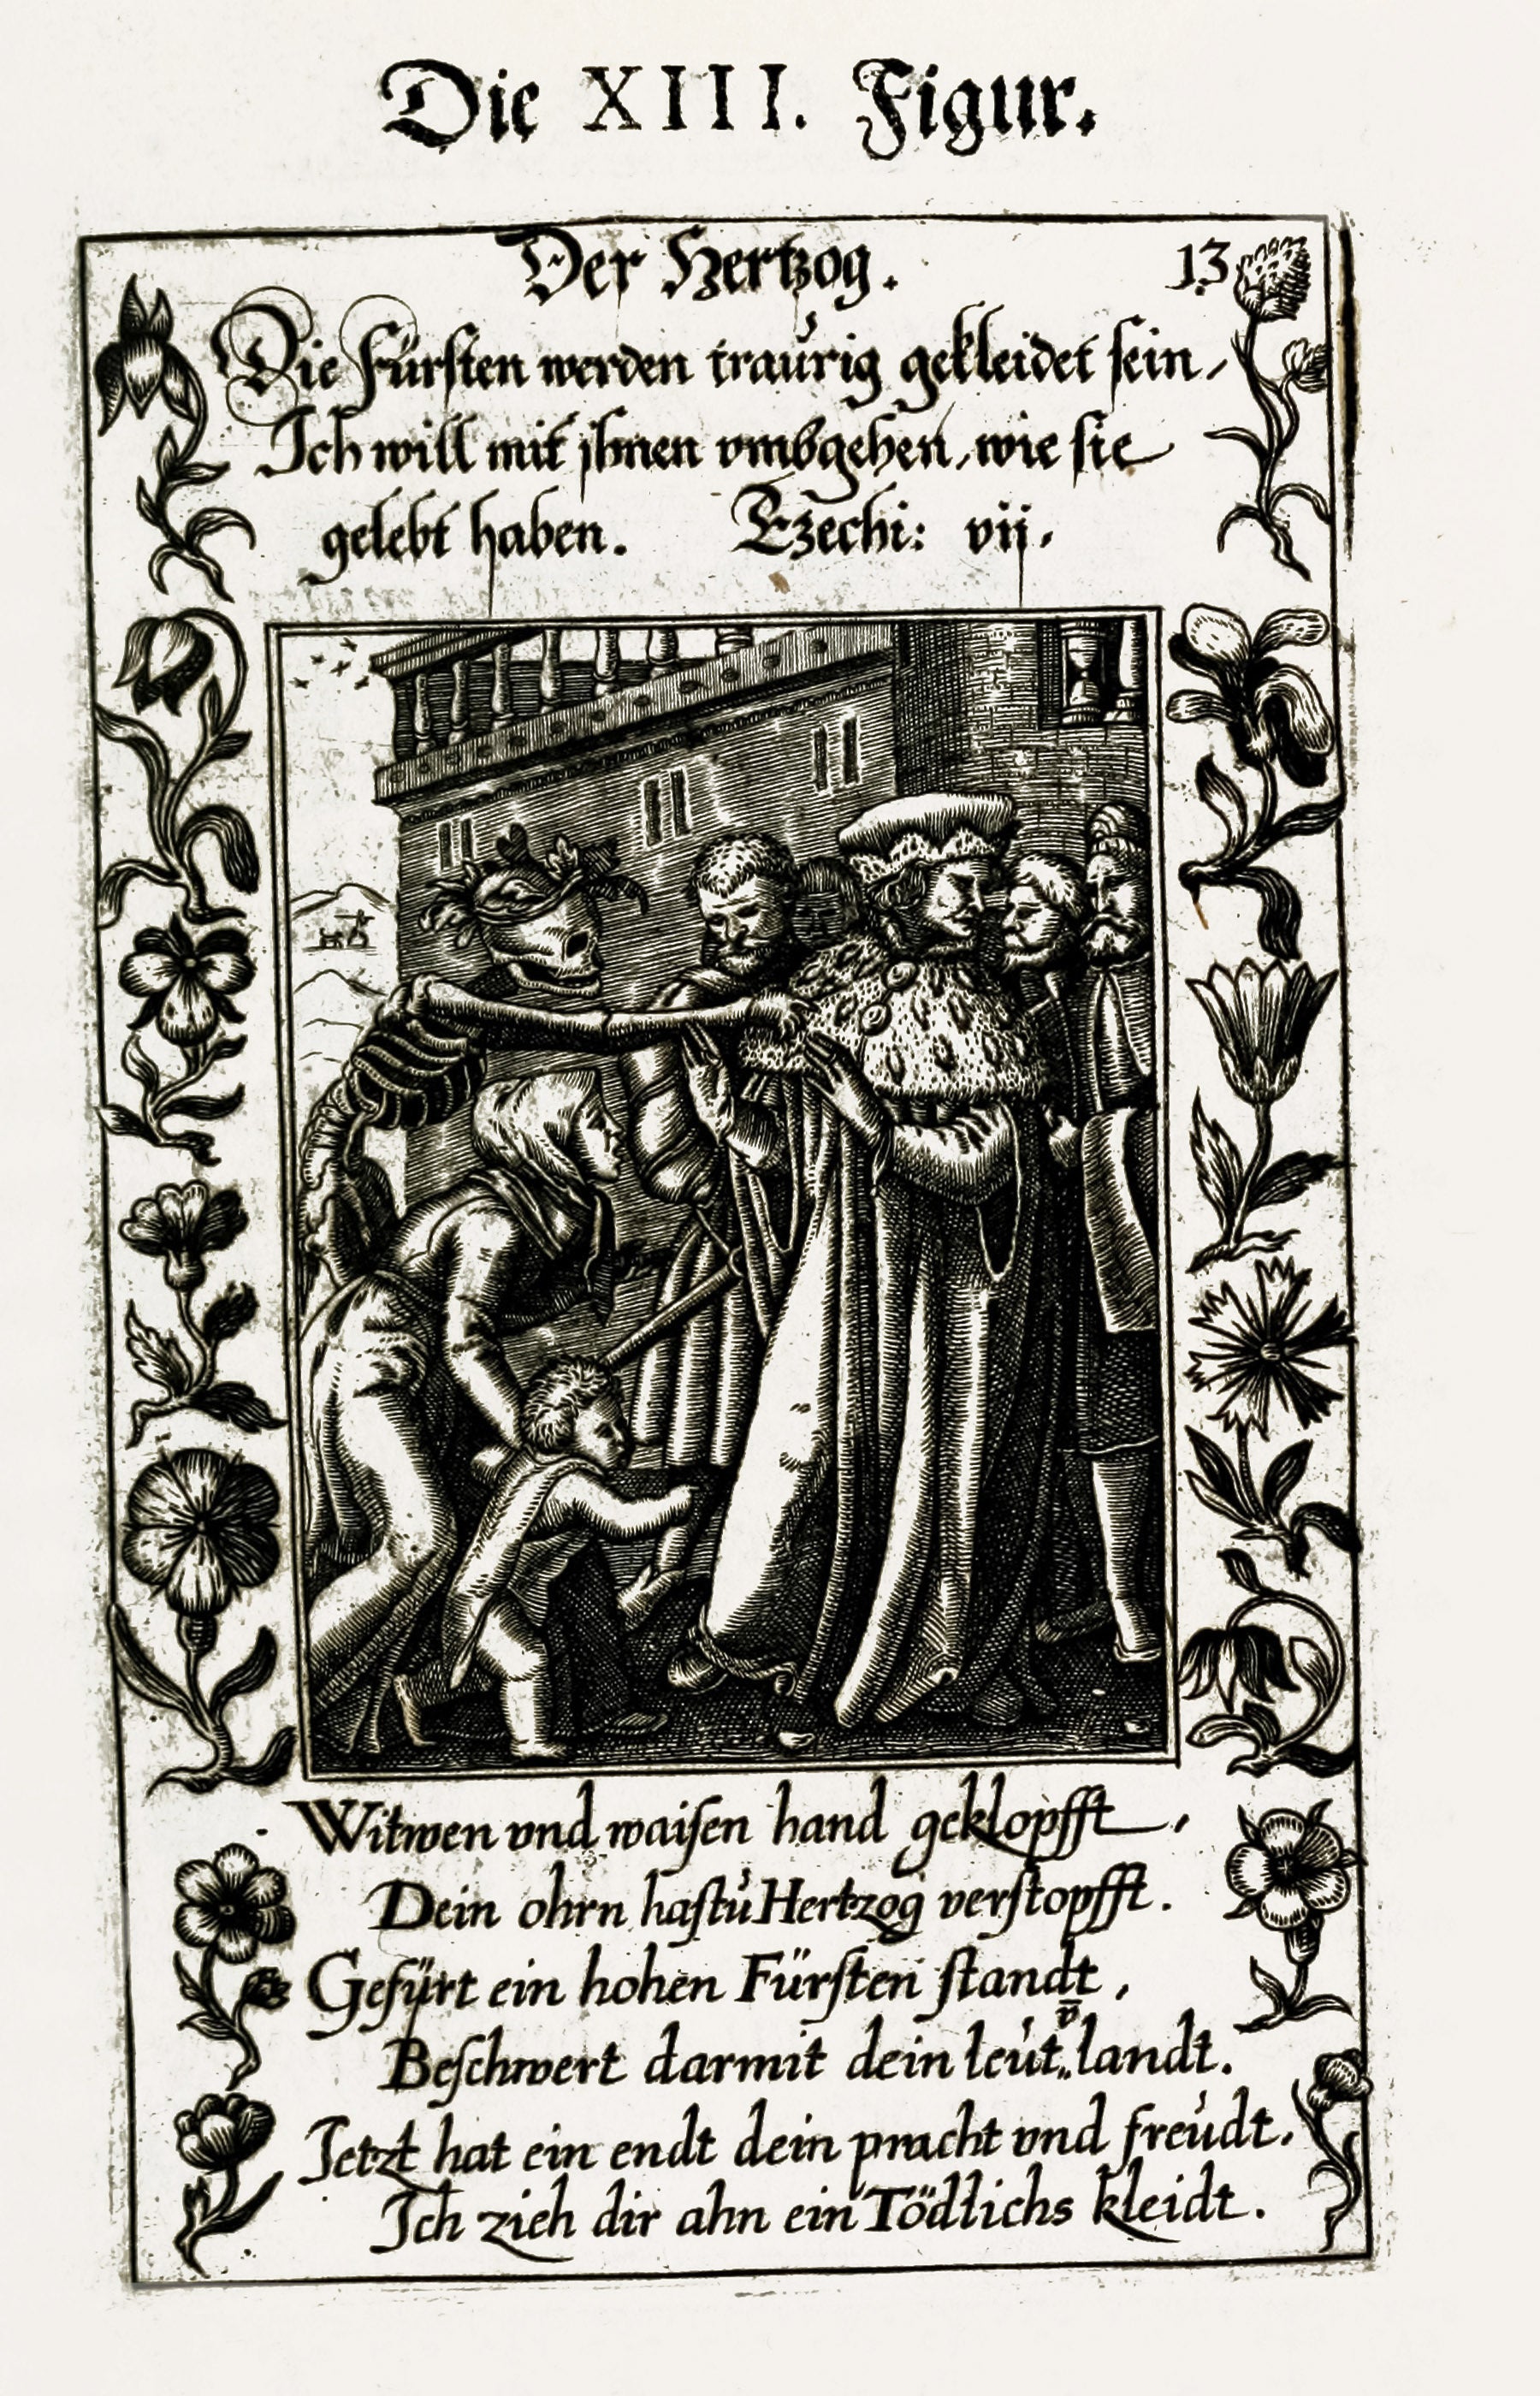 Die XIII. Figur.
Der Hertzog. 13
Die Fürsten werden traurig gekleidet sein,
Ich will mit jhnen vmbgehen, wie sie
gelebt haben. Ezechi: vij.
Witwen vnd waisen hand geklopfft,
Dein ohrn hastu Hertzog verstopfft.
Gefürt ein hohen Fürsten standt,
Beschwert darmit dein leut v̄ landt.
Jetzt hat ein endt dein pracht vnd freudt.
Ich zieh dir ahn ein Tödtlichs kleidt.